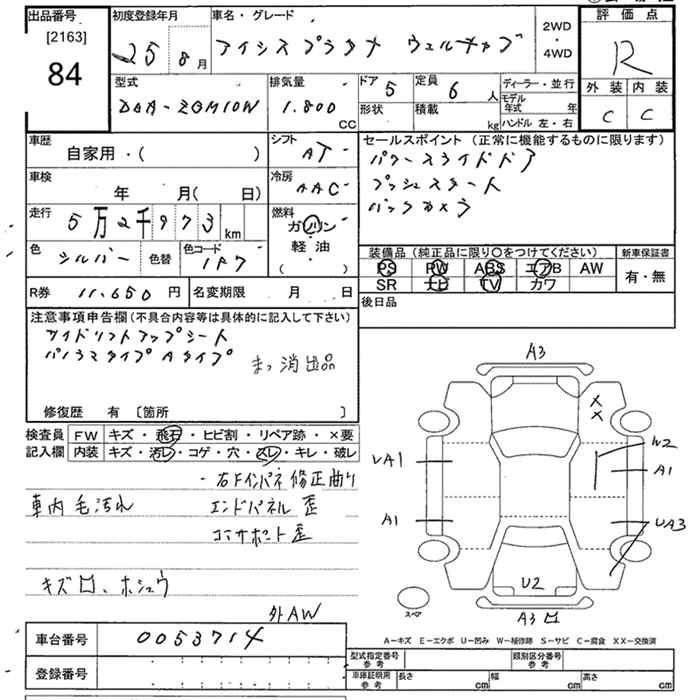 出品番号
[2163]
84
初度登録年月
25 8月
車名・グレード
アイシス プラタナ ウェルキャブ
2WD
・
4WD
評価点
R
外装 内装
C C
型式
DBA-ZGM10W
排気量
1.800
CC
ドア 5
形状
定員 6 人
積載 kg
ディーラー・並行
モデル年式 年
ハンドル 左・右
車歴
自家用・( )
シフト
AT
車検
年 月( 日)
冷房
AAC
走行
5万2千973 km
燃料
ガソリン
軽油・
( )
色
シルバー
色替
色コード
1F7
R券 11.650 円
名変期限 月 日
セールスポイント (正常に機能するものに限ります)
パワースライドドア
プッシュスタート
バックカメラ
装備品 (純正品に限り○をつけてください)
PS PW ABS エアB AW
SR ナビ TV カワ
新車保証書
有・無
後日品
注意事項申告欄 (不具合内容等は具体的に記入して下さい)
サイドリフトアップシート
パノラマタイプ Aタイプ
まっ消出品
修復歴 有 〔箇所 〕
検査員記入欄
FW キズ・飛石・ヒビ割・リペア跡・×要
内装 キズ・汚レ・コゲ・穴・スレ・キレ・破レ
・右Fインパネ修正曲り
車内毛汚れ エンドパネル歪
コアサポート歪
キズ ロ、ホシュウ
外AW
A3
XX
W2
UA1
A1
A1
UA3
U2
スペア
A3 ロ
A-キズ E-エクボ U-凹み W-補修跡 S-サビ C-腐食 XX-交換済
車台番号 0053714
登録番号
型式指定番号 参考
類別区分番号 参考
車庫証明用 参考
長さ cm 幅 cm 高さ cm